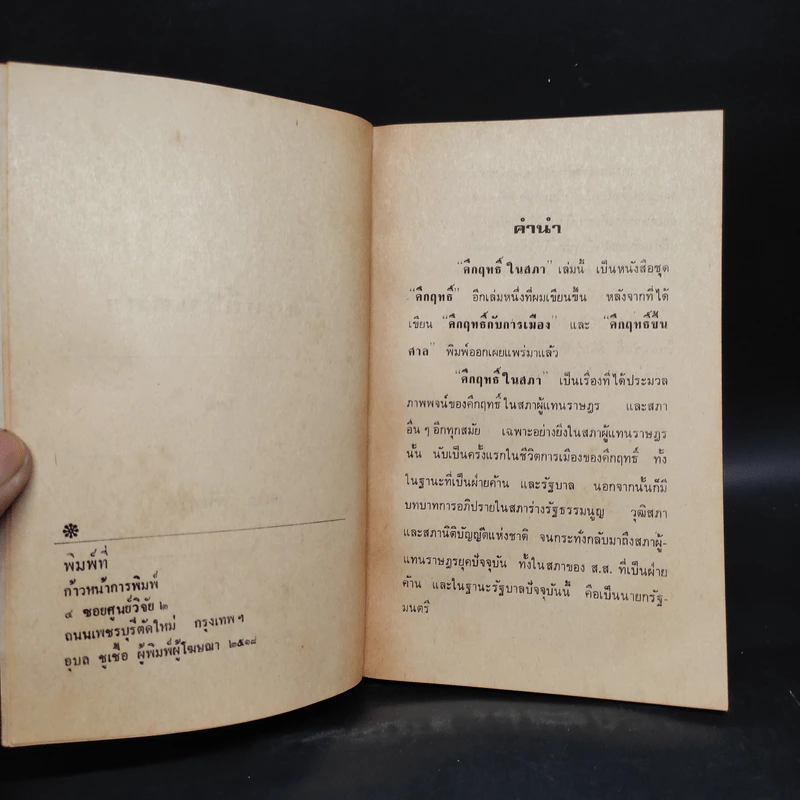 พิมพ์ที่
ก้าวหน้าการพิมพ์
๔ ซอยศูนย์วิจัย ๒
ถนนเพชรบุรีตัดใหม่ กรุงเทพฯ
อุบล ชูเชื้อ ผู้พิมพ์ผู้โฆษณา ๒๕๑๘
คำนำ
"คึกฤทธิ์ ในสภา" เล่มนี้ เป็นหนังสือชุด
"คึกฤทธิ์" อีกเล่มหนึ่งที่ผมเขียนขึ้น หลังจากที่ได้
เขียน "คึกฤทธิ์กับการเมือง" และ "คึกฤทธิ์ขึ้น
ศาล" พิมพ์ออกเผยแพร่มาแล้ว
"คึกฤทธิ์ ในสภา" เป็นเรื่องที่ได้ประมวล
ภาพพจน์ของคึกฤทธิ์ ในสภาผู้แทนราษฎร และสภา
อื่น ๆ อีกทุกสมัย เฉพาะอย่างยิ่งในสภาผู้แทนราษฎร
นั้น นับเป็นครั้งแรกในชีวิตการเมืองของคึกฤทธิ์ ทั้ง
ในฐานะที่เป็นฝ่ายค้าน และรัฐบาล นอกจากนั้นก็มี
บทบาทการอภิปรายในสภาร่างรัฐธรรมนูญ วุฒิสภา
และสภานิติบัญญัติแห่งชาติ จนกระทั่งกลับมาถึงสภาผู้-
แทนราษฎรยุคปัจจุบัน ทั้งในสภาของ ส.ส. ที่เป็นฝ่าย
ค้าน และในฐานะรัฐบาลปัจจุบันนี้ คือเป็นนายกรัฐ-
มนตรี